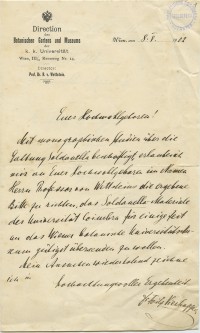 Direction
des
Botanischen Gartens und Museums
der
k. k. Universität
Wien, III., Rennweg Nr. 14.
Director:
Prof. Dr. R. v. Wettstein.
Wien, 8. I. 1902
Euer Hochwohlgeboren!
Mit monographischen Studien über die
Gattung Soldanella beschäftigt, erlaube ich
mir an Euer Hochwohlgeboren im Namen
Herrn Professor von Wettsteins die ergebene
Bitte zu richten, das Soldanella-Materiale
der Universität Coimbra für einige Zeit
an das Wiener botanische Universitäts-
gütigst übersenden zu wollen.
Dem Ansuchen wiederholend zeichne
ich in
hochachtungsvoller Ergebenheit